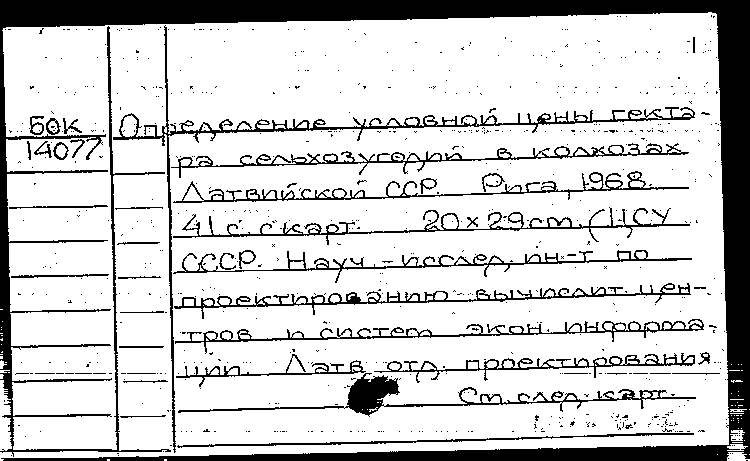 БОК
14077
Определение условной цены гекта-
ра сельхозугодий в колхозах
Латвийской ССР. Рига, 1968.
41 с. с карт. 20×29 см. (ЦСУ
СССР. Науч.-исслед. ин-т по
проектированию вычислит. цен-
тров и систем экон. информа-
ции. Латв. отд. проектирования
См. след. карт.